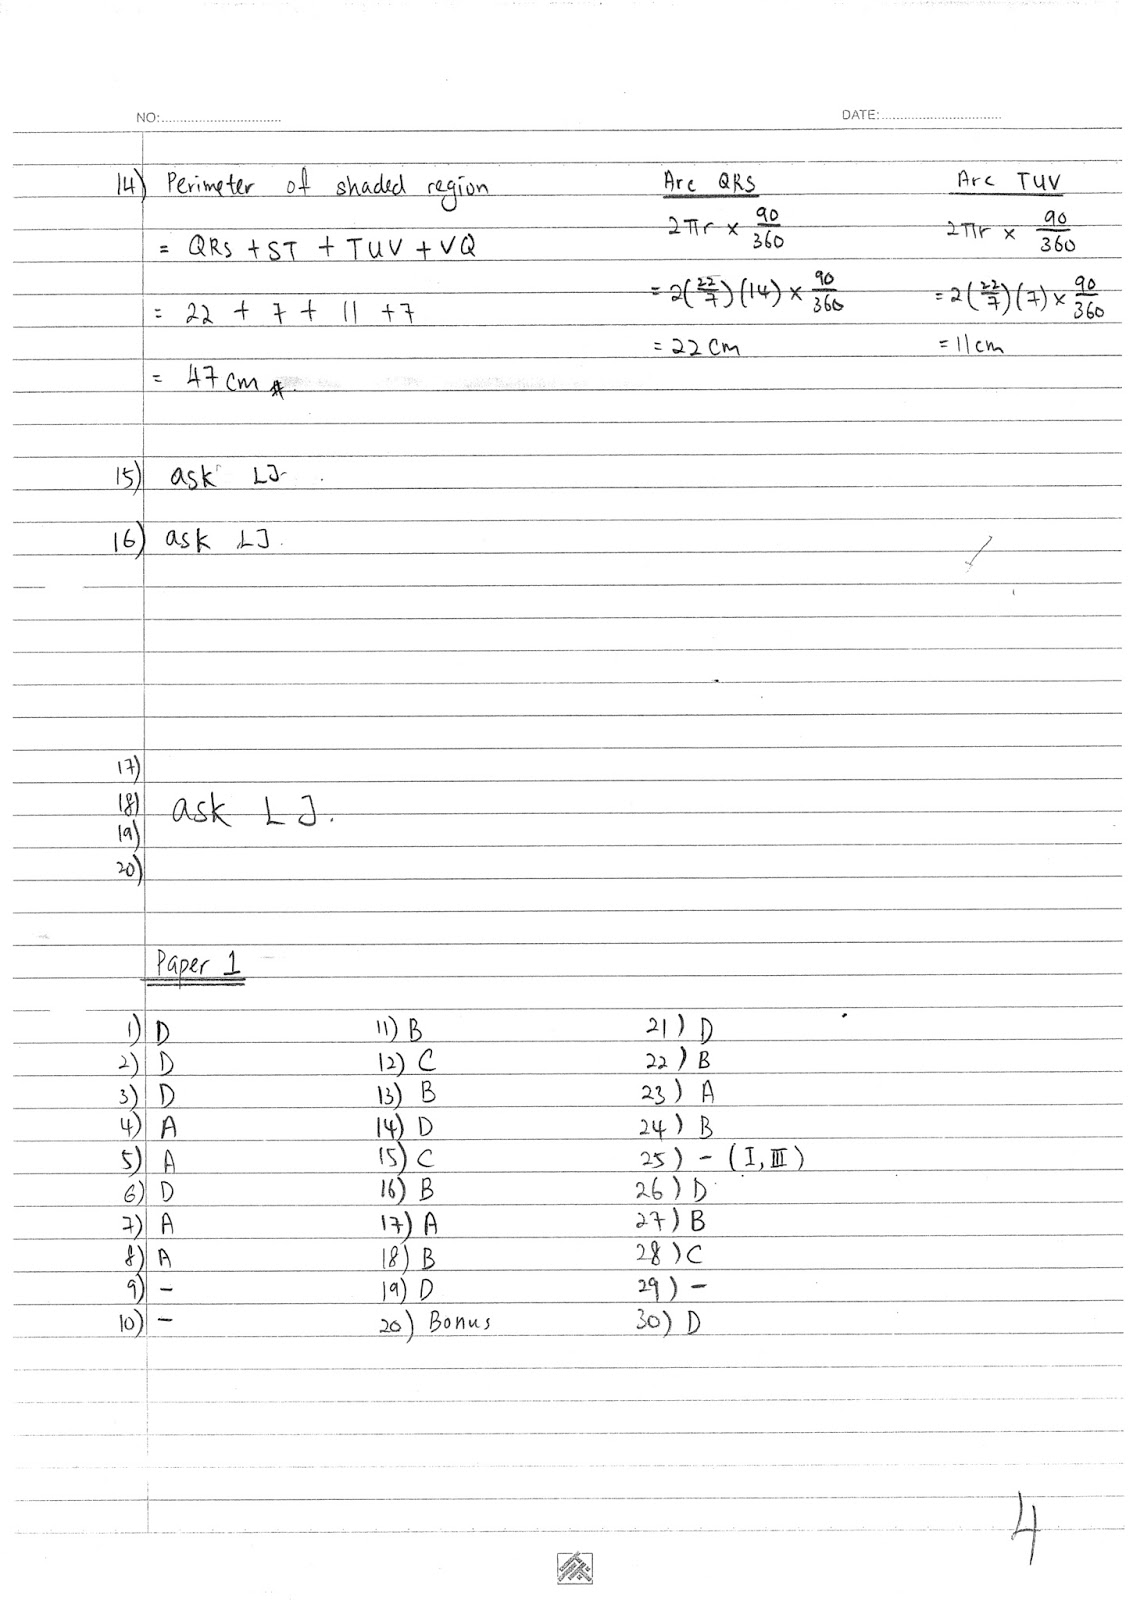 NO:................................
DATE:................................
14) Perimeter of shaded region
= QRS + ST + TUV + VQ
= 22 + 7 + 11 + 7
= 47 cm #
Arc QRS
2πr × 90/360
= 2(22/7)(14) × 90/360
= 22 cm
Arc TUV
2πr × 90/360
= 2(22/7)(7) × 90/360
= 11 cm
15) ask LJ.
16) ask LJ.
17)
18) ask LJ.
19)
20)
Paper 1
1) D
2) D
3) D
4) A
5) A
6) D
7) A
8) A
9) -
10) -
11) B
12) C
13) B
14) D
15) C
16) B
17) A
18) B
19) D
20) Bonus
21) D
22) B
23) A
24) B
25) - (I, III)
26) D
27) B
28) C
29) -
30) D
4